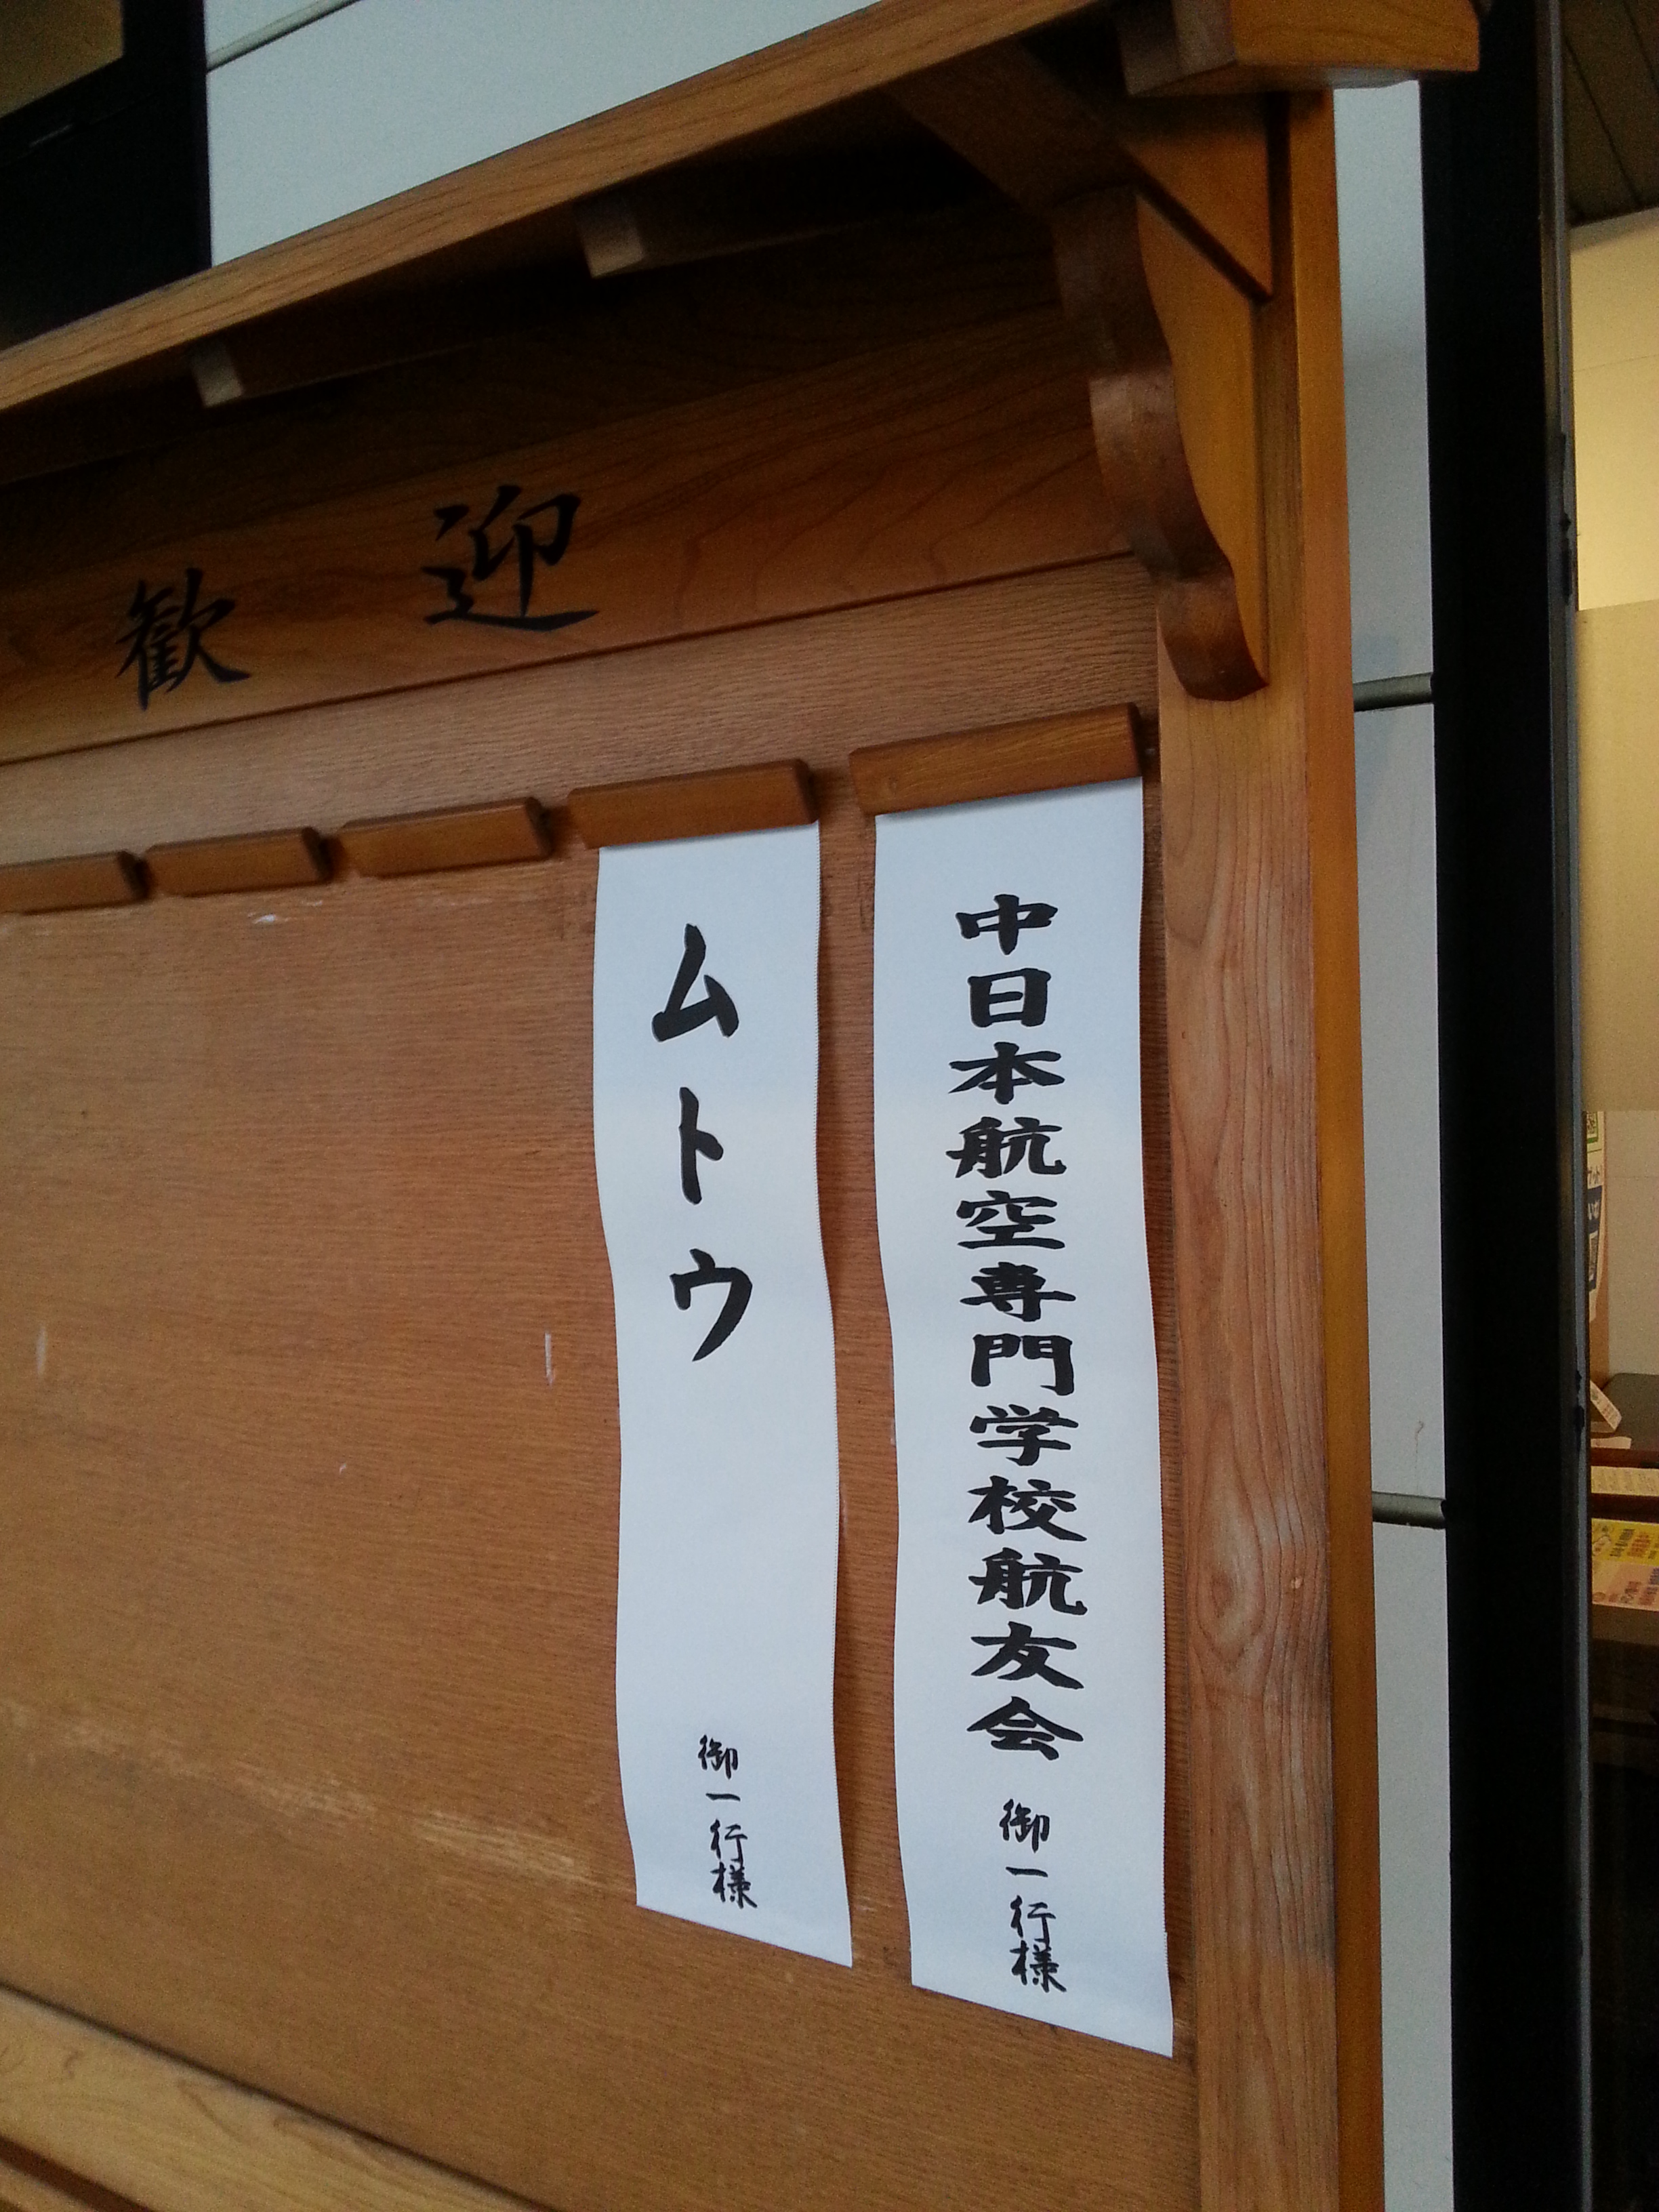 歓迎
中日本航空専門学校航友会 御一行様
ムトウ 御一行様